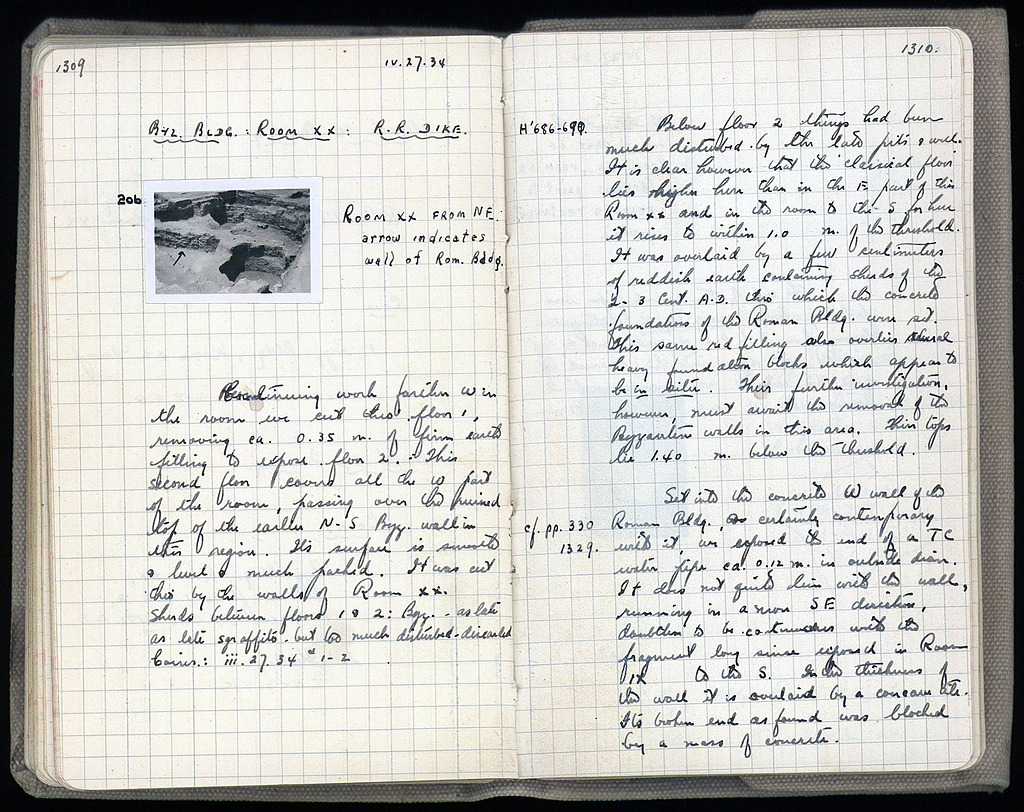 1309
IV.27.34
BYZ. BLDG. : ROOM XX : R.R. DIKE.
206
ROOM XX FROM NE.
arrow indicates
wall of Rom. Bldg.
Continuing work farther W in
the room we cut thro' floor 1,
removing ca. 0.35 m. of firm earth
filling to expose floor 2. This
second floor covers all the W part
of the room, passing over the ruined
top of the earlier N-S Byz. wall in
this region. Its surface is smooth
& level & much packed. It was cut
thro by the walls of Room XX.
Sherds between floors 1 & 2: Byz. - as late
as late sgraffito - but too much disturbed - discarded
Coins.: iii.27.34 # 1-2
1310.
H'686-690.
Below floor 2 things had been
much disturbed by the late pits & well.
It is clear however that the classical floor
lies higher here than in the E part of this
Room XX and in the room to the S for here
it rises to within 1.0 m. of the threshold.
It was overlaid by a few centimeters
of reddish earth containing sherds of the
2-3 Cent. A.D. thro which the concrete
foundations of the Roman Bldg. were set.
This same red filling also overlies several
heavy foundation blocks which appear to
be in situ. Their further investigation,
however, must await the removal of the
Byzantine walls in this area. Their tops
lie 1.40 m. below the threshold.
Set into the concrete W wall of the
cf. pp. 330
Roman Bldg., certainly contemporary
1329.
with it, we exposed the end of a TC
water pipe ca. 0.12 m. in outside diam.
It does not quite line with the wall,
running in a more SE direction,
doubtless to be continuous with the
fragment long since exposed in Room
to the S. In the thickness of
the wall it is overlaid by a concave tile.
Its broken end as found was blocked
by a mass of concrete.